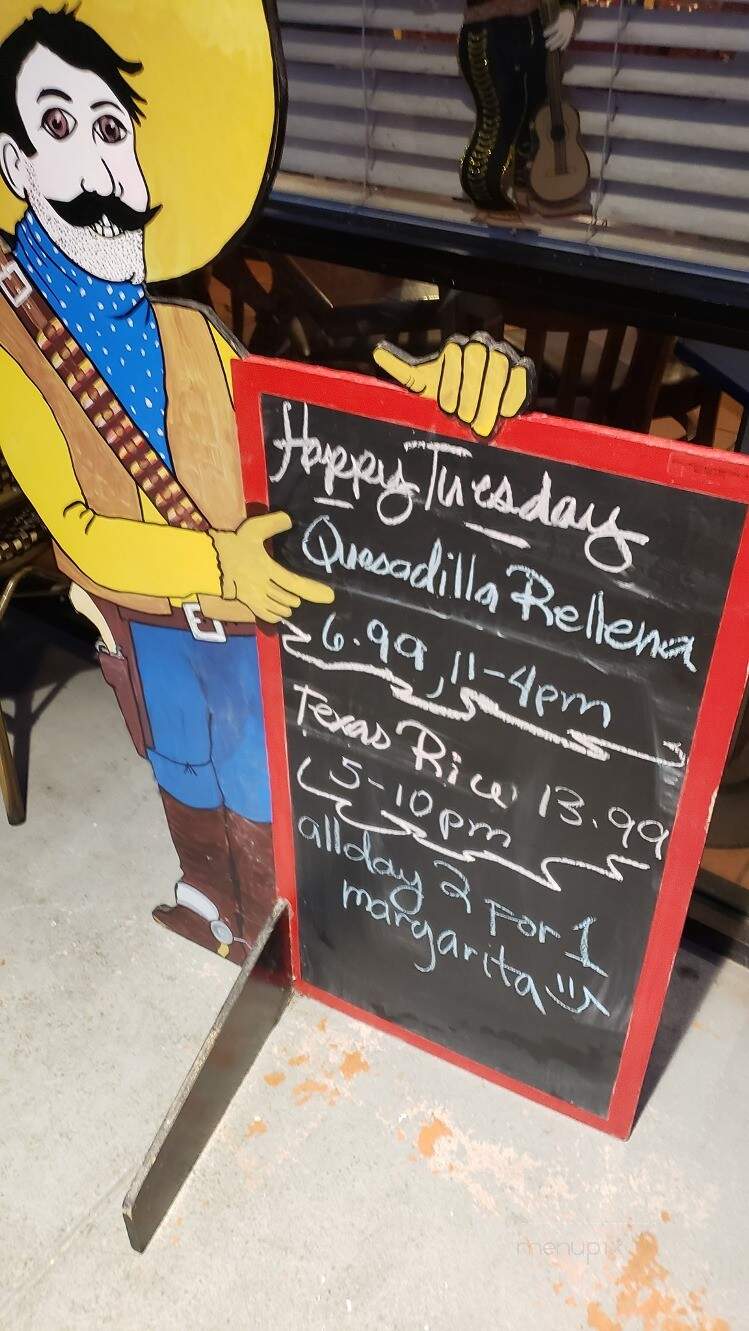 Happy Tuesday
Quesadilla Rellena
6.99, 11-4pm
Texas Rice 13.99
5-10pm
allday 2 For 1
margarita
menupix